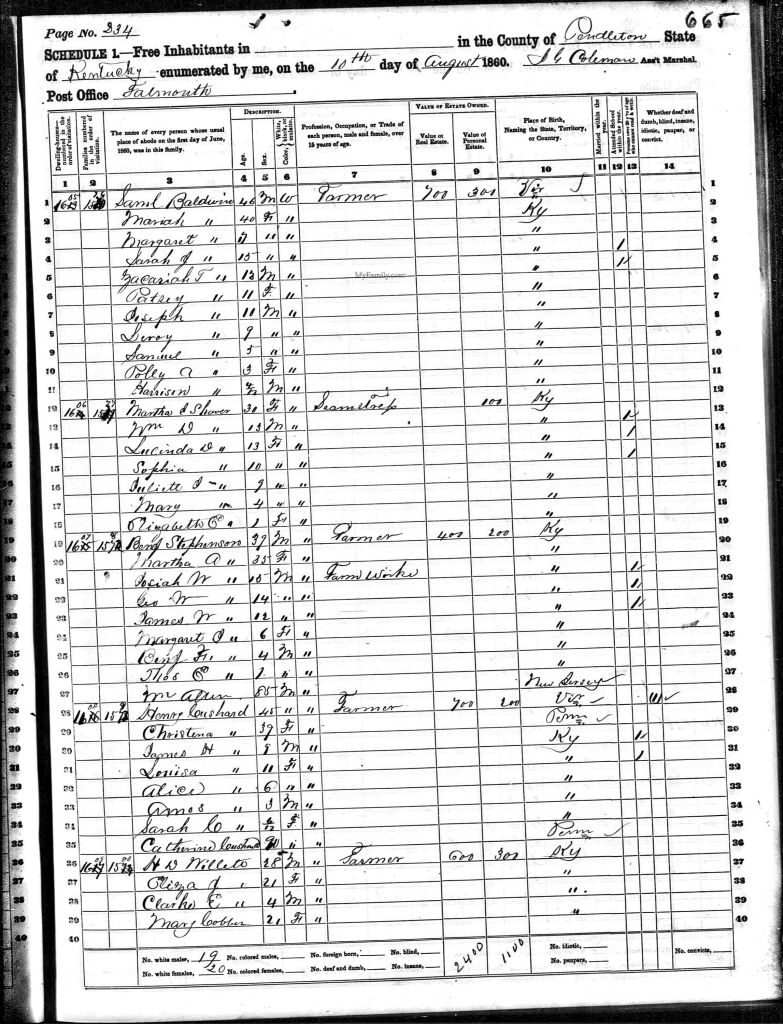 665
Page No. 234
SCHEDULE 1.—Free Inhabitants in in the County of Pendleton State
of Kentucky enumerated by me, on the 10th day of August 1860. Coleman Ass't Marshal.
Post Office Falmouth
Dwelling-houses numbered in the order of visitation.
Families numbered in the order of visitation.
The name of every person whose usual place of abode on the first day of June, 1860, was in this family.
DESCRIPTION.
Age.
Sex.
Color, White, black, or mulatto.
Profession, Occupation, or Trade of each person, male and female, over 15 years of age.
VALUE OF ESTATE OWNED.
Value of Real Estate.
Value of Personal Estate.
Place of Birth, Naming the State, Territory, or Country.
Married within the year.
Attended School within the year.
Persons over 20 y'rs of age who cannot read & write.
Whether deaf and dumb, blind, insane, idiotic, pauper, or convict.
1 2 3 4 5 6 7 8 9 10 11 12 13 14
1 Saml Baldwin 46 M W Farmer 700 300 Vir 1
2 Mariah " 40 F " Ky 2
3 Margaret " " " " 3
4 Sarah J " 15 " " " 1 4
5 Zacariah T " 13 M " " 1 5
MyFamily.com
6 Patsey " 11 F " " 6
7 Joseph " 11 M " " 7
8 Leroy " 9 " " " 8
9 Samuel " 5 " " " 9
10 Polly A " 3 F " " 10
11 Harrison " M " " 11
12 Martha J Shover 30 F " Seamstress 100 Ky 12
13 Wm D " 13 M " " 1 13
14 Lucinda D " 13 F " " 1 14
15 Sophia " 10 " " " 1 15
16 Juliett " 9 " " " 16
17 Mary " 4 " " " 17
18 Elizabeth E " 1 F " " 18
19 Benj Stephenson 39 M " Farmer 400 200 Ky 19
20 Martha A " 35 F " " 20
21 Josiah W " 15 M " Farm Work " 1 21
22 Geo W " 14 " " " 1 22
23 James W " 12 " " " 1 23
24 Margaret J " 6 F " " 24
25 Benj F " 4 M " " 25
26 Thos E " 1 " " " 26
27 Wm Allen 85 M " New Jersey 27
28 Henry Cushard 45 " " Farmer 700 200 Vir 28
29 Christena " 39 F " Penn 29
30 James H " 8 M " Ky 1 30
31 Louisa " 11 F " " 1 31
32 Alice " 6 " " " 32
33 Amos " 3 M " " 33
34 Sarah C " F " " 34
35 Catherine Cushard " " Penn 35
36 H D Willett 28 M " Farmer 600 300 Ky 36
37 Eliza J " 21 F " " 37
38 Clarke E " 4 M " " 38
39 Mary Cobber 21 F " " 39
40 40
No. white males, 19 No. colored males, No. foreign born, No. blind, 2400 1100 No. idiotic, No. convicts,
No. white females, 20 No. colored females, No. deaf and dumb, No. insane, No. paupers,